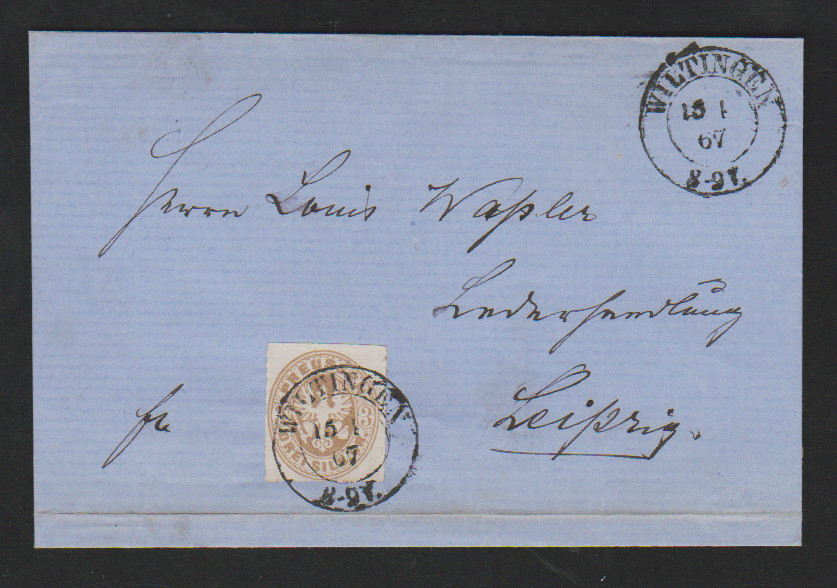 WILTINGEN
15 1
67
8-9 V.
Herrn Louis Waßler
Lederhandlung
fr
Leipzig.
PREUSSEN
DREI SILB. GR.
3
WILTINGEN
15 1
67
8-9 V.